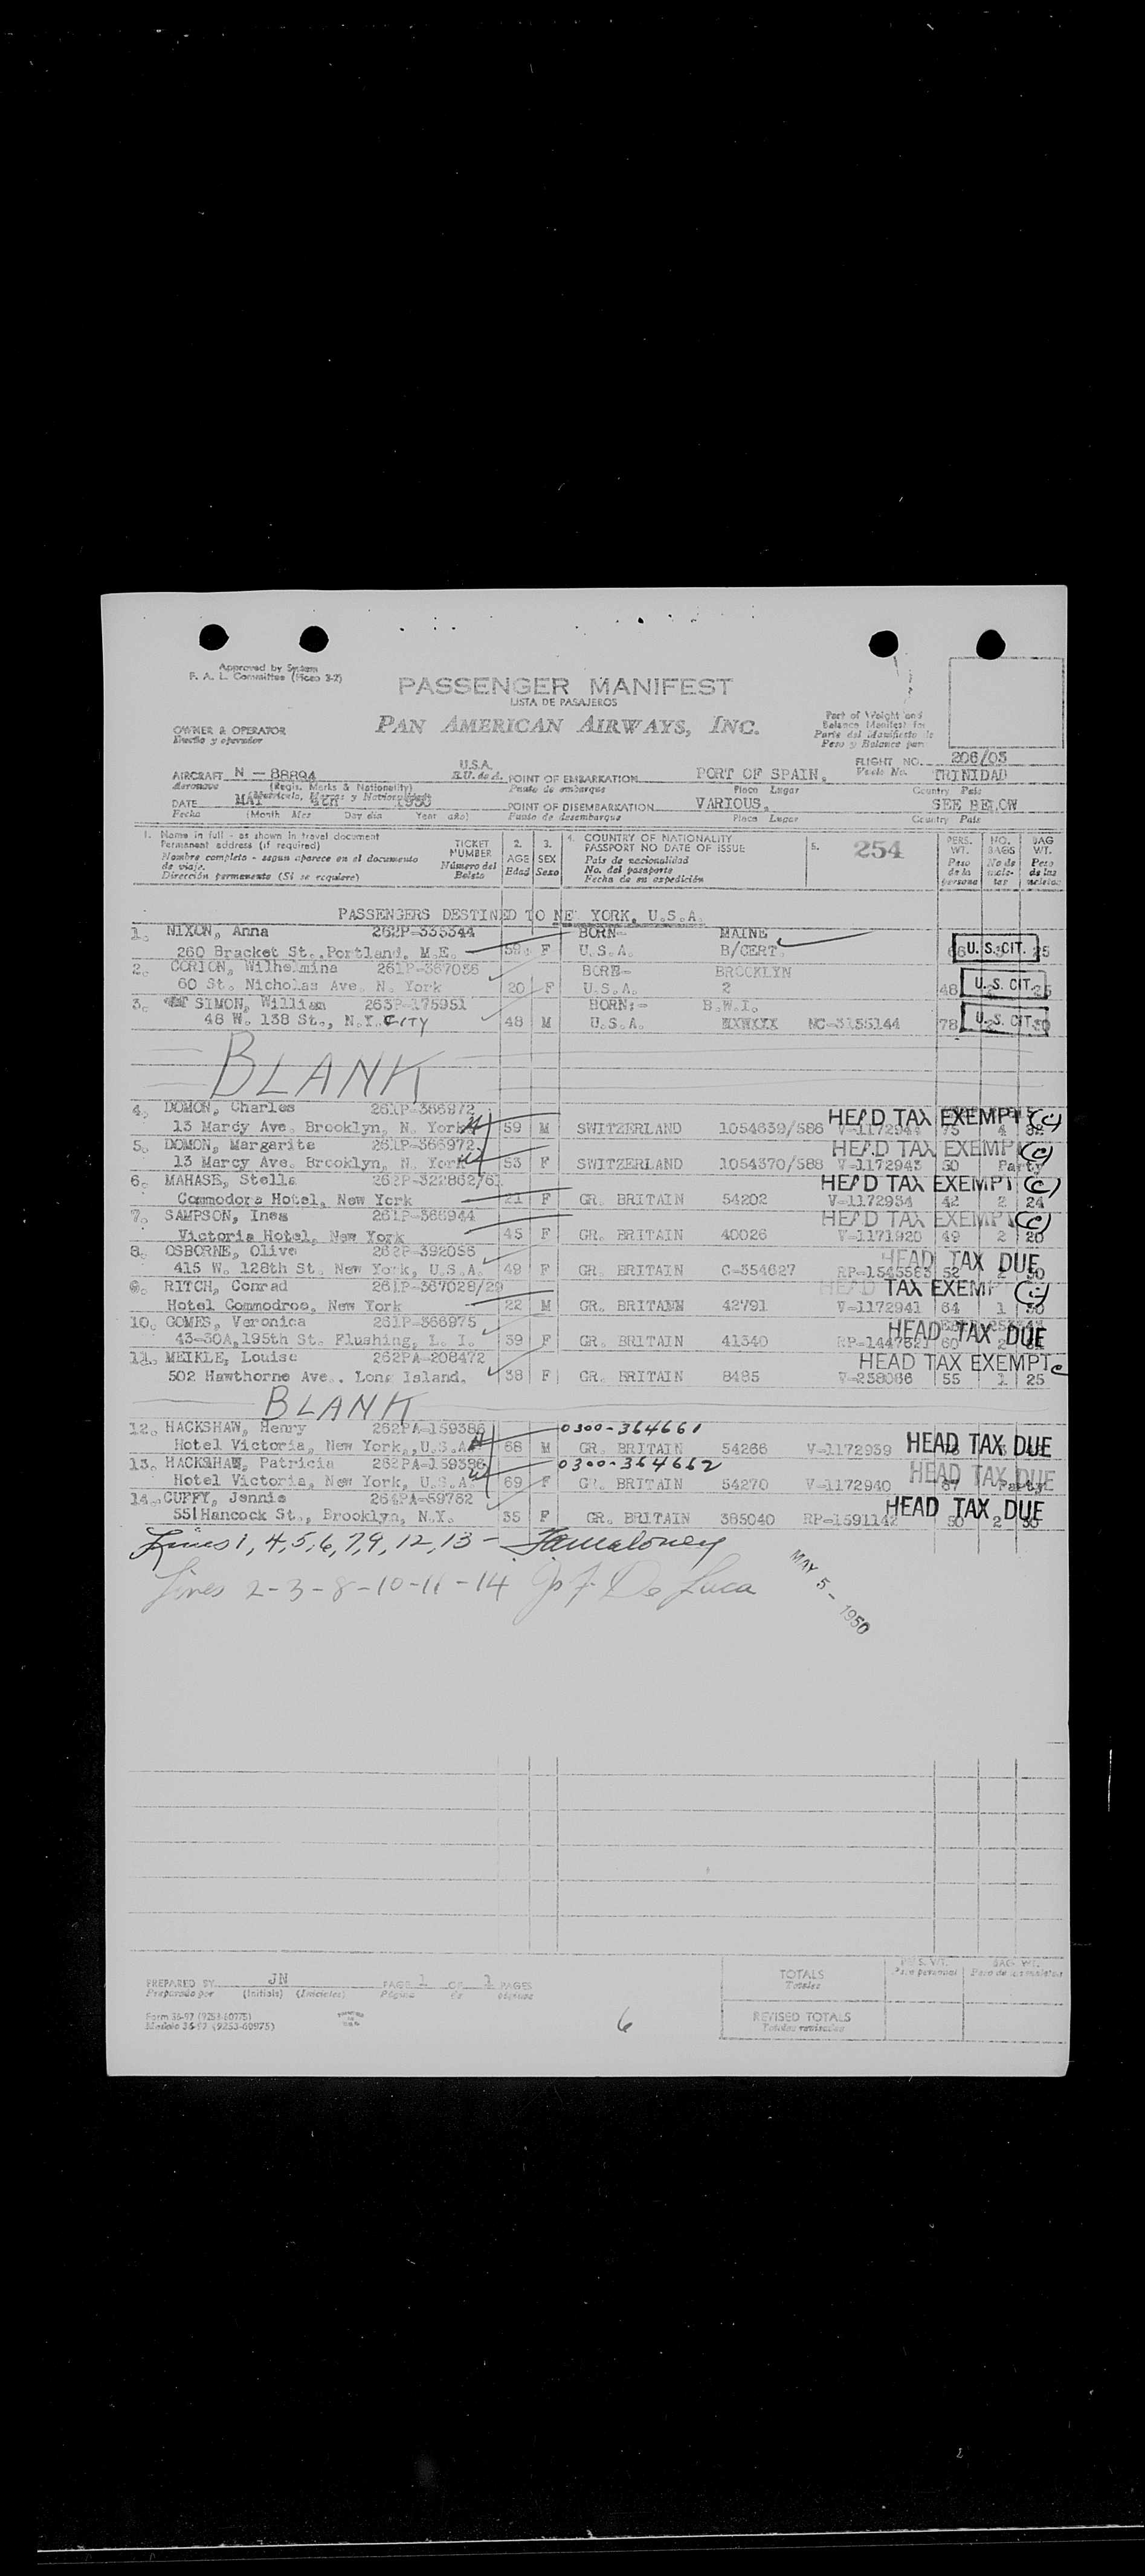 Approved by System
F. A. L. Committee
PASSENGER MANIFEST
LISTA DE PASAJEROS
PAN AMERICAN AIRWAYS, INC.
OWNER & OPERATOR
Dueño y operador
Part of Weight and
Balance Manifest for
Parte del Manifiesto de
Peso y Balance para
FLIGHT NO. 206/03
Vuelo No.
AIRCRAFT N - 88894 U.S.A.
Aeronave (Regis. Marks & Nationality) E.U. de A.
POINT OF EMBARKATION PORT OF SPAIN. TRINIDAD
Punto de embarque Place Lugar Country País
DATE MAY 4th 1950
Fecha (Month Mes Day día Year año)
POINT OF DISEMBARKATION VARIOUS. SEE BELOW
Punto de desembarque Place Lugar Country País
1. Name in full - as shown in travel document
Permanent address (if required)
Nombre completo - segun aparece en el documento
de viaje.
Dirección permanente (Si se requiere)
TICKET NUMBER
Número del Boleto
2. AGE Edad
3. SEX Sexo
4. COUNTRY OF NATIONALITY
PASSPORT NO DATE OF ISSUE
País de nacionalidad
No. del pasaporte
Fecha de su expedición
5. 254
PERS. WT. Peso de la persona
NO. BAGS No de male- tas
BAG WT. Peso de las maletas
PASSENGERS DESTINED TO NEW YORK, U.S.A.
1. NIXON, Anna 262P-335344 BORN- MAINE
260 Bracket St., Portland, M.E. F U.S.A. B/CERT. U.S. CIT. 25
2. CORION, Wilhelmina 261P-367036 BORN- BROOKLYN
60 St. Nicholas Ave. N. York 20 F U.S.A. 2 48 U.S. CIT.
3. SIMON, William 263P-175951 BORN:- B.W.I.
48 W. 138 St., N.Y. CITY 48 M U.S.A. NC-3155144 78 U.S. CIT. 30
BLANK
4. DOMON, Charles 261P-366972 HEAD TAX EXEMPT (c)
13 Marcy Ave. Brooklyn, N. York 59 M SWITZERLAND 1054639/586 V-1172944 75 4
5. DOMON, Margarite 261P-366972 HEAD TAX EXEMPT (c)
13 Marcy Ave. Brooklyn, N. York 53 F SWITZERLAND 1054370/588 V-1172943 50 Party
6. MAHASE, Stella 262P-322862/61 HEAD TAX EXEMPT (c)
Commodore Hotel, New York 21 F GR. BRITAIN 54202 V-1172934 42 2 24
7. SAMPSON, Ines 261P-366944 HEAD TAX EXEMPT (c)
Victoria Hotel, New York 45 F GR. BRITAIN 40026 V-1171920 49 2 20
8. OSBORNE, Olive 262P-392055 HEAD TAX DUE
415 W. 128th St. New York, U.S.A. 49 F GR. BRITAIN C-354627 RP-1545583 52 30
9. RITCH, Conrad 261P-367028/29 HEAD TAX EXEMPT
Hotel Commodroe, New York 22 M GR. BRITAIN 42791 V-1172941 64 1 30
10. GOMES, Veronica 261P-366975 HEAD TAX DUE
43-30A, 195th St. Flushing, L. I. 39 F GR. BRITAIN 41340 RP-1447621 60
11. MEIKLE, Louise 262PA-208472 HEAD TAX EXEMPT c
502 Hawthorne Ave.. Long Island. 38 F GR. BRITAIN 8485 V-238086 55 1 25
BLANK
12. HACKSHAW, Henry 262PA-159386 0300-364661
Hotel Victoria, New York, U.S.A. 68 M GR. BRITAIN 54266 V-1172939 HEAD TAX DUE
13. HACKSHAW, Patricia 262PA-159386 0300-364662 HEAD TAX DUE
Hotel Victoria, New York, U.S.A. 69 F GR. BRITAIN 54270 V-1172940 67 Party
14. CUFFY, Jennie 264PA-59762 HEAD TAX DUE
551 Hancock St., Brooklyn, N.Y. 35 F GR. BRITAIN 385040 RP-1591142 50 2
Lines 1, 4, 5, 6, 7, 9, 12, 13 -
Lines 2-3-8-10-11-14 De Luca
MAY 5 - 1950
PREPARED BY JN PAGE 1 OF 1 PAGES
Preparado por (Initials) (Iniciales) Página De páginas
Form 36-97 (9253-60975)
Modelo 36-97 (9253-60975)
6
TOTALS
Totales
PERS. WT.
Peso personal
BAG. WT.
Peso de las maletas
REVISED TOTALS
Totales revisados